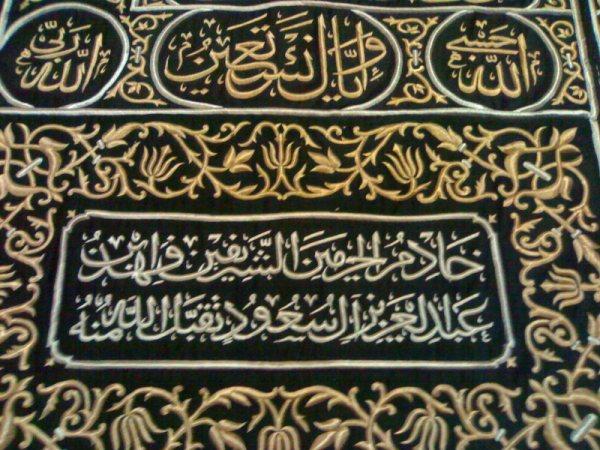 الله حسبي
وإياك نستعين
الله ربي
خادم الحرمين الشريفين فهد بن
عبد العزيز آل سعود تقبل الله منه